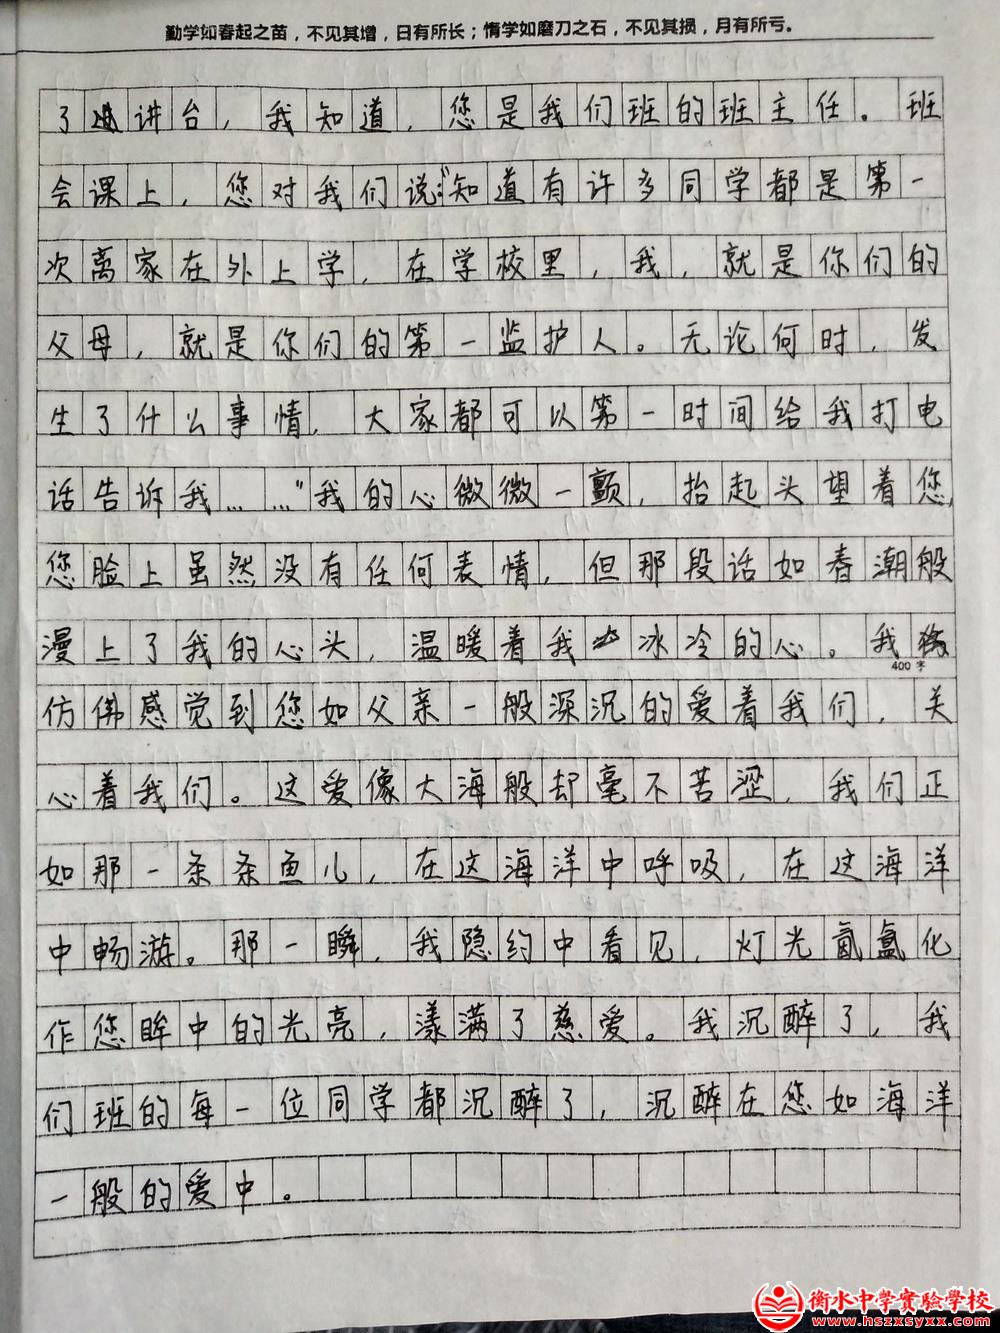 勤学如春起之苗，不见其增，日有所长；惰学如磨刀之石，不见其损，月有所亏。
了讲台，我知道，您是我们班的班主任。班
会课上，您对我们说："知道有许多同学都是第一
次离家在外上学，在学校里，我，就是你们的
父母，就是你们的第一监护人。无论何时，发
生了什么事情，大家都可以第一时间给我打电
话告诉我……"我的心微微一颤，抬起头望着您，
您脸上虽然没有任何表情，但那段话如春潮般
漫上了我的心头，温暖着我冰冷的心。我
400字
仿佛感觉到您如父亲一般深沉的爱着我们，关
心着我们。这爱像大海般却毫不苦涩，我们正
如那一条条鱼儿，在这海洋中呼吸，在这海洋
中畅游。那一瞬，我隐约中看见，灯光氤氲化
作您眸中的光亮，漾满了慈爱。我沉醉了，我
们班的每一位同学都沉醉了，沉醉在您如海洋
一般的爱中。
衡水中学实验学校
www.hszxsyxx.com